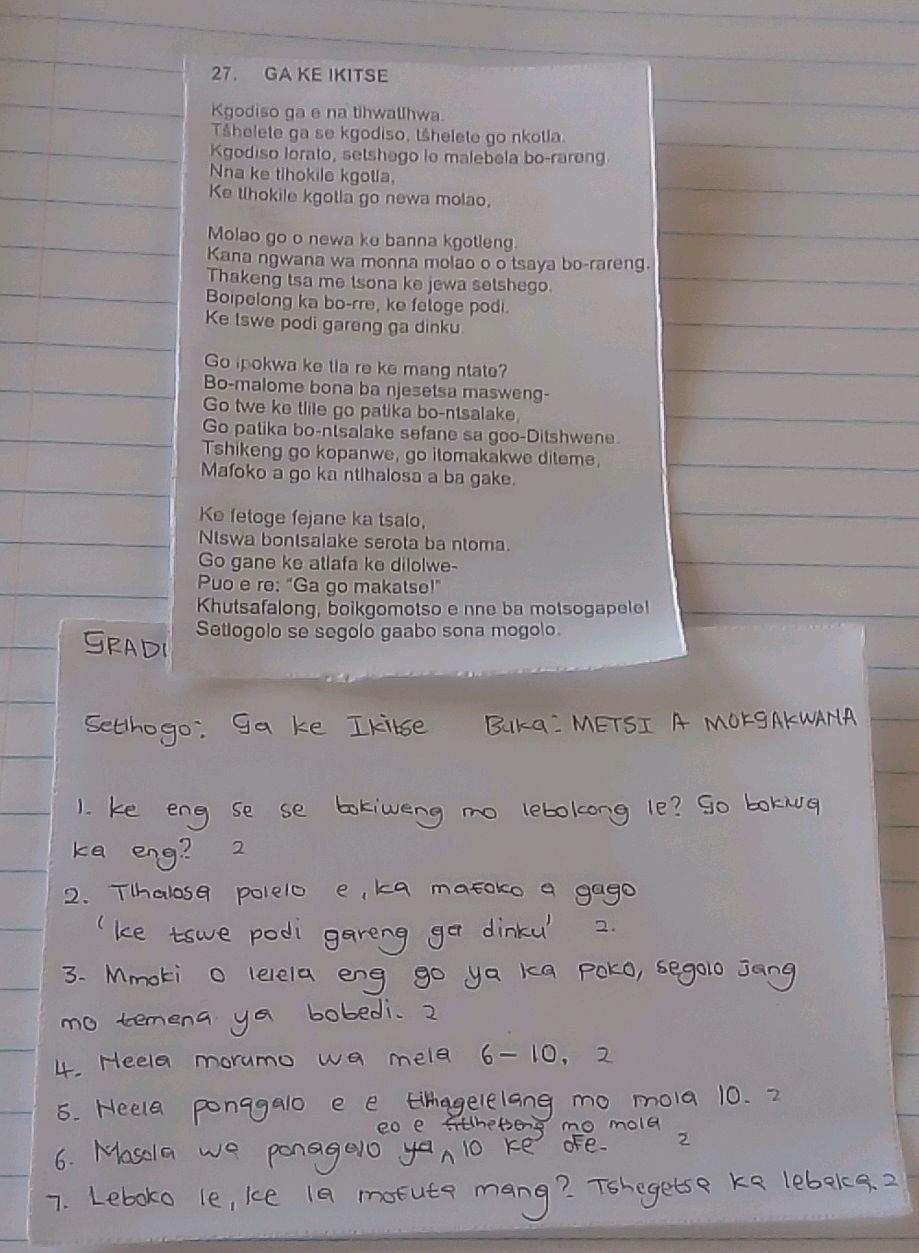 27. GA KE IKITSE
Kgodiso ga e na tlhwatlhwa.
Tšhelete ga se kgodiso, tšhelete go nkotla.
Kgodiso lorato, setshego le malebela bo-rareng.
Nna ke tlhokile kgotla,
Ke tlhokile kgotla go newa molao,
Molao go o newa ke banna kgotleng.
Kana ngwana wa monna molao o o tsaya bo-rareng.
Thakeng tsa me tsona ke jewa setshego.
Boipelong ka bo-rre, ke fetoge podi.
Ke tswe podi gareng ga dinku.
Go ipokwa ke tla re ke mang ntate?
Bo-malome bona ba njesetsa masweng-
Go twe ke tlile go patika bo-ntsalake,
Go patika bo-ntsalake sefane sa goo-Ditshwene.
Tshikeng go kopanwe, go itomakakwe diteme,
Mafoko a go ka ntlhalosa a ba gake.
Ke fetoge fejane ka tsalo,
Ntswa bontsalake serota ba ntoma.
Go gane ke atlafa ke dilolwe-
Puo e re: "Ga go makatse!"
Khutsafalong, boikgomotso e nne ba motsogapele!
Setlogolo se segolo gaabo sona mogolo.
GRADI
Setlhogo: Ga ke Ikitse Buka: METSI A MOKGAKWANA
1. Ke eng se se bokiweng mo lebokong le? Go bokiwa
ka eng? 2
2. Tlhalosa polelo e, ka mafoko a gago
'ke tswe podi gareng ga dinku' 2.
3- Mmoki o lelela eng go ya ka poko, segolo jang
mo temena ya bobedi. 2
4. Neela morumo wa mela 6-10, 2
5. Neela ponagalo e e tlhagelelang mo mola 10. 2
eo e fitlhetseng mo mola
6. Masola wa ponagalo ya ^ 10 ke ofe. 2
7. Leboko le, ke la mofuta mang? Tshegetsa ka lebaka. 2